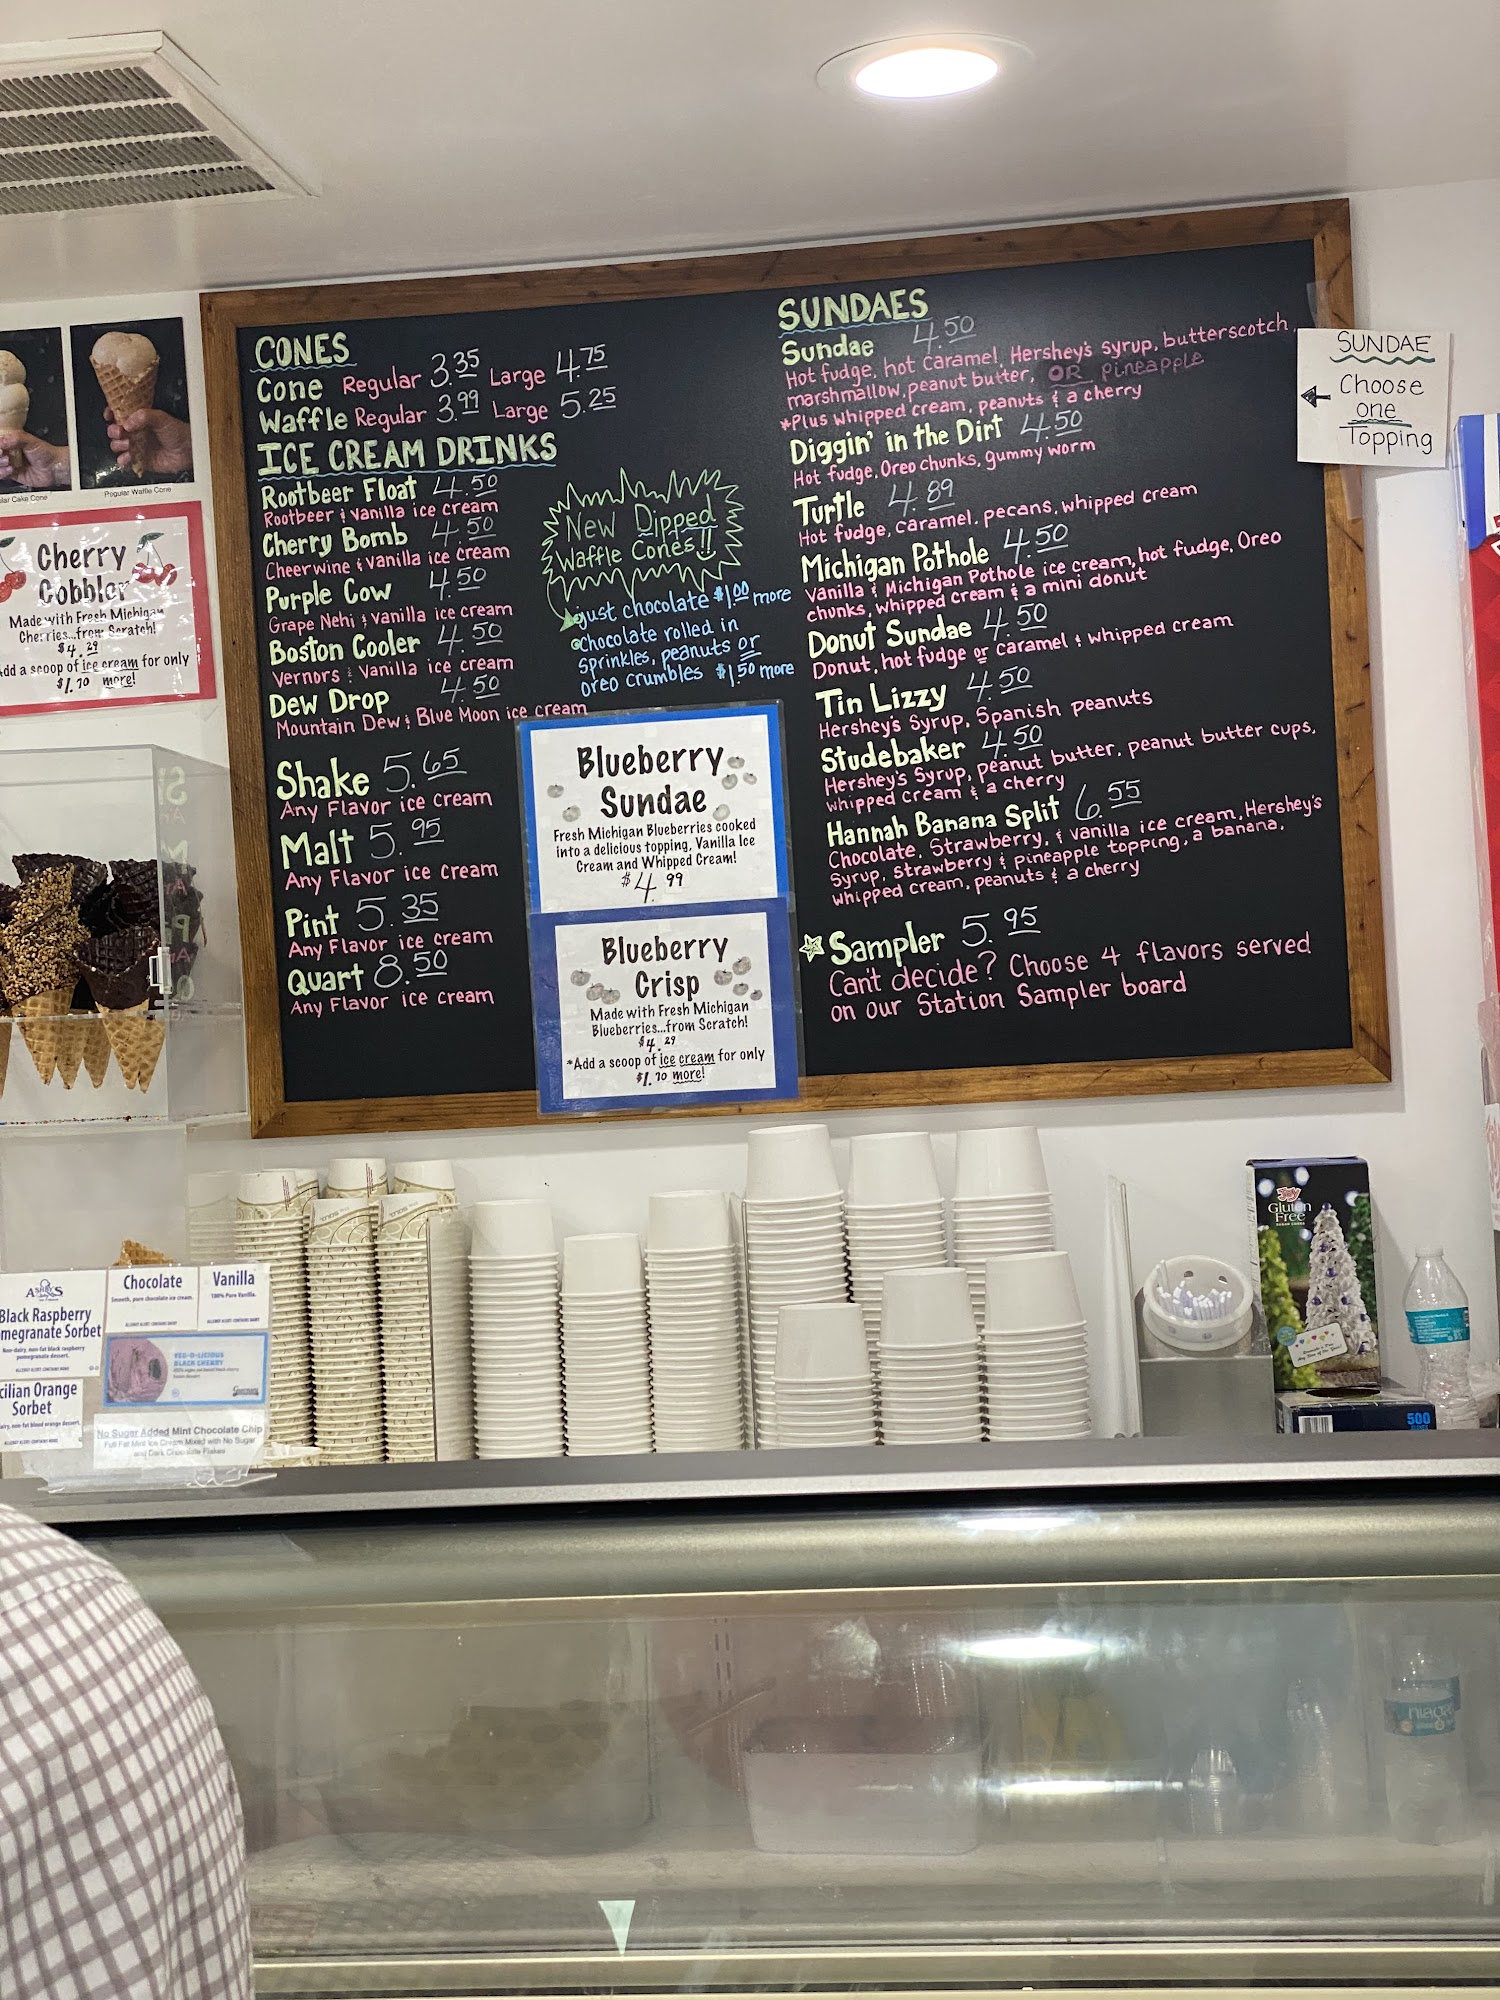 CONES
Cone Regular 3.35 Large 4.75
Waffle Regular 3.99 Large 5.25
ICE CREAM DRINKS
Rootbeer Float 4.50
Rootbeer & vanilla ice cream
Cherry Bomb 4.50
Cheerwine & vanilla ice cream
Purple Cow 4.50
Grape Nehi & vanilla ice cream
Boston Cooler 4.50
Vernors & Vanilla ice cream
Dew Drop 4.50
Mountain Dew & Blue Moon ice cream
Shake 5.65
Any Flavor ice cream
Malt 5.95
Any Flavor ice cream
Pint 5.35
Any Flavor ice cream
Quart 8.50
Any Flavor ice cream
New Dipped
Waffle Cones!!
just chocolate $1.00 more
chocolate rolled in
sprinkles, peanuts or
oreo crumbles $1.50 more
Blueberry
Sundae
Fresh Michigan Blueberries cooked
into a delicious topping, Vanilla Ice
Cream and Whipped Cream!
$4.99
Blueberry
Crisp
Made with Fresh Michigan
Blueberries...from Scratch!
$4.29
*Add a scoop of ice cream for only
$1.70 more!
SUNDAES
Sundae 4.50
Hot fudge, hot caramel, Hershey's syrup, butterscotch,
marshmallow, peanut butter, OR pineapple
*Plus whipped cream, peanuts & a cherry
Diggin' in the Dirt 4.50
Hot fudge, Oreo chunks, gummy worm
Turtle 4.89
Hot fudge, caramel, pecans, whipped cream
Michigan Pothole 4.50
Vanilla & Michigan Pothole ice cream, hot fudge, Oreo
chunks, whipped cream & a mini donut
Donut Sundae 4.50
Donut, hot fudge or caramel & whipped cream
Tin Lizzy 4.50
Hershey's Syrup, Spanish peanuts
Studebaker 4.50
Hershey's Syrup, peanut butter, peanut butter cups,
whipped cream & a cherry
Hannah Banana Split 6.55
Chocolate, Strawberry, & vanilla ice cream, Hershey's
Syrup, Strawberry & pineapple topping, a banana,
whipped cream, peanuts & a cherry
Sampler 5.95
Can't decide? Choose 4 flavors served
on our Station Sampler board
SUNDAE
Choose
one
Topping
Cake Cone
Regular Waffle Cone
Cherry
Cobbler
Made with Fresh Michigan
Cherries...from Scratch!
$4.29
Add a scoop of ice cream for only
$1.70 more!
ASHBY'S
Black Raspberry
Sorbet
Non-dairy, non-fat black raspberry
pomegranate dessert.
Orange
Sorbet
non-fat blood orange dessert.
Chocolate
Smooth, pure chocolate ice cream.
Vanilla
100% Pure Vanilla.
VEG-O-LICIOUS
BLACK CHERRY
No Sugar Added Mint Chocolate Chip
Full Fat Mint Ice Cream Mixed with No Sugar
and Dark Chocolate Flakes
Joy
Gluten
Free
SUGAR CONES
500